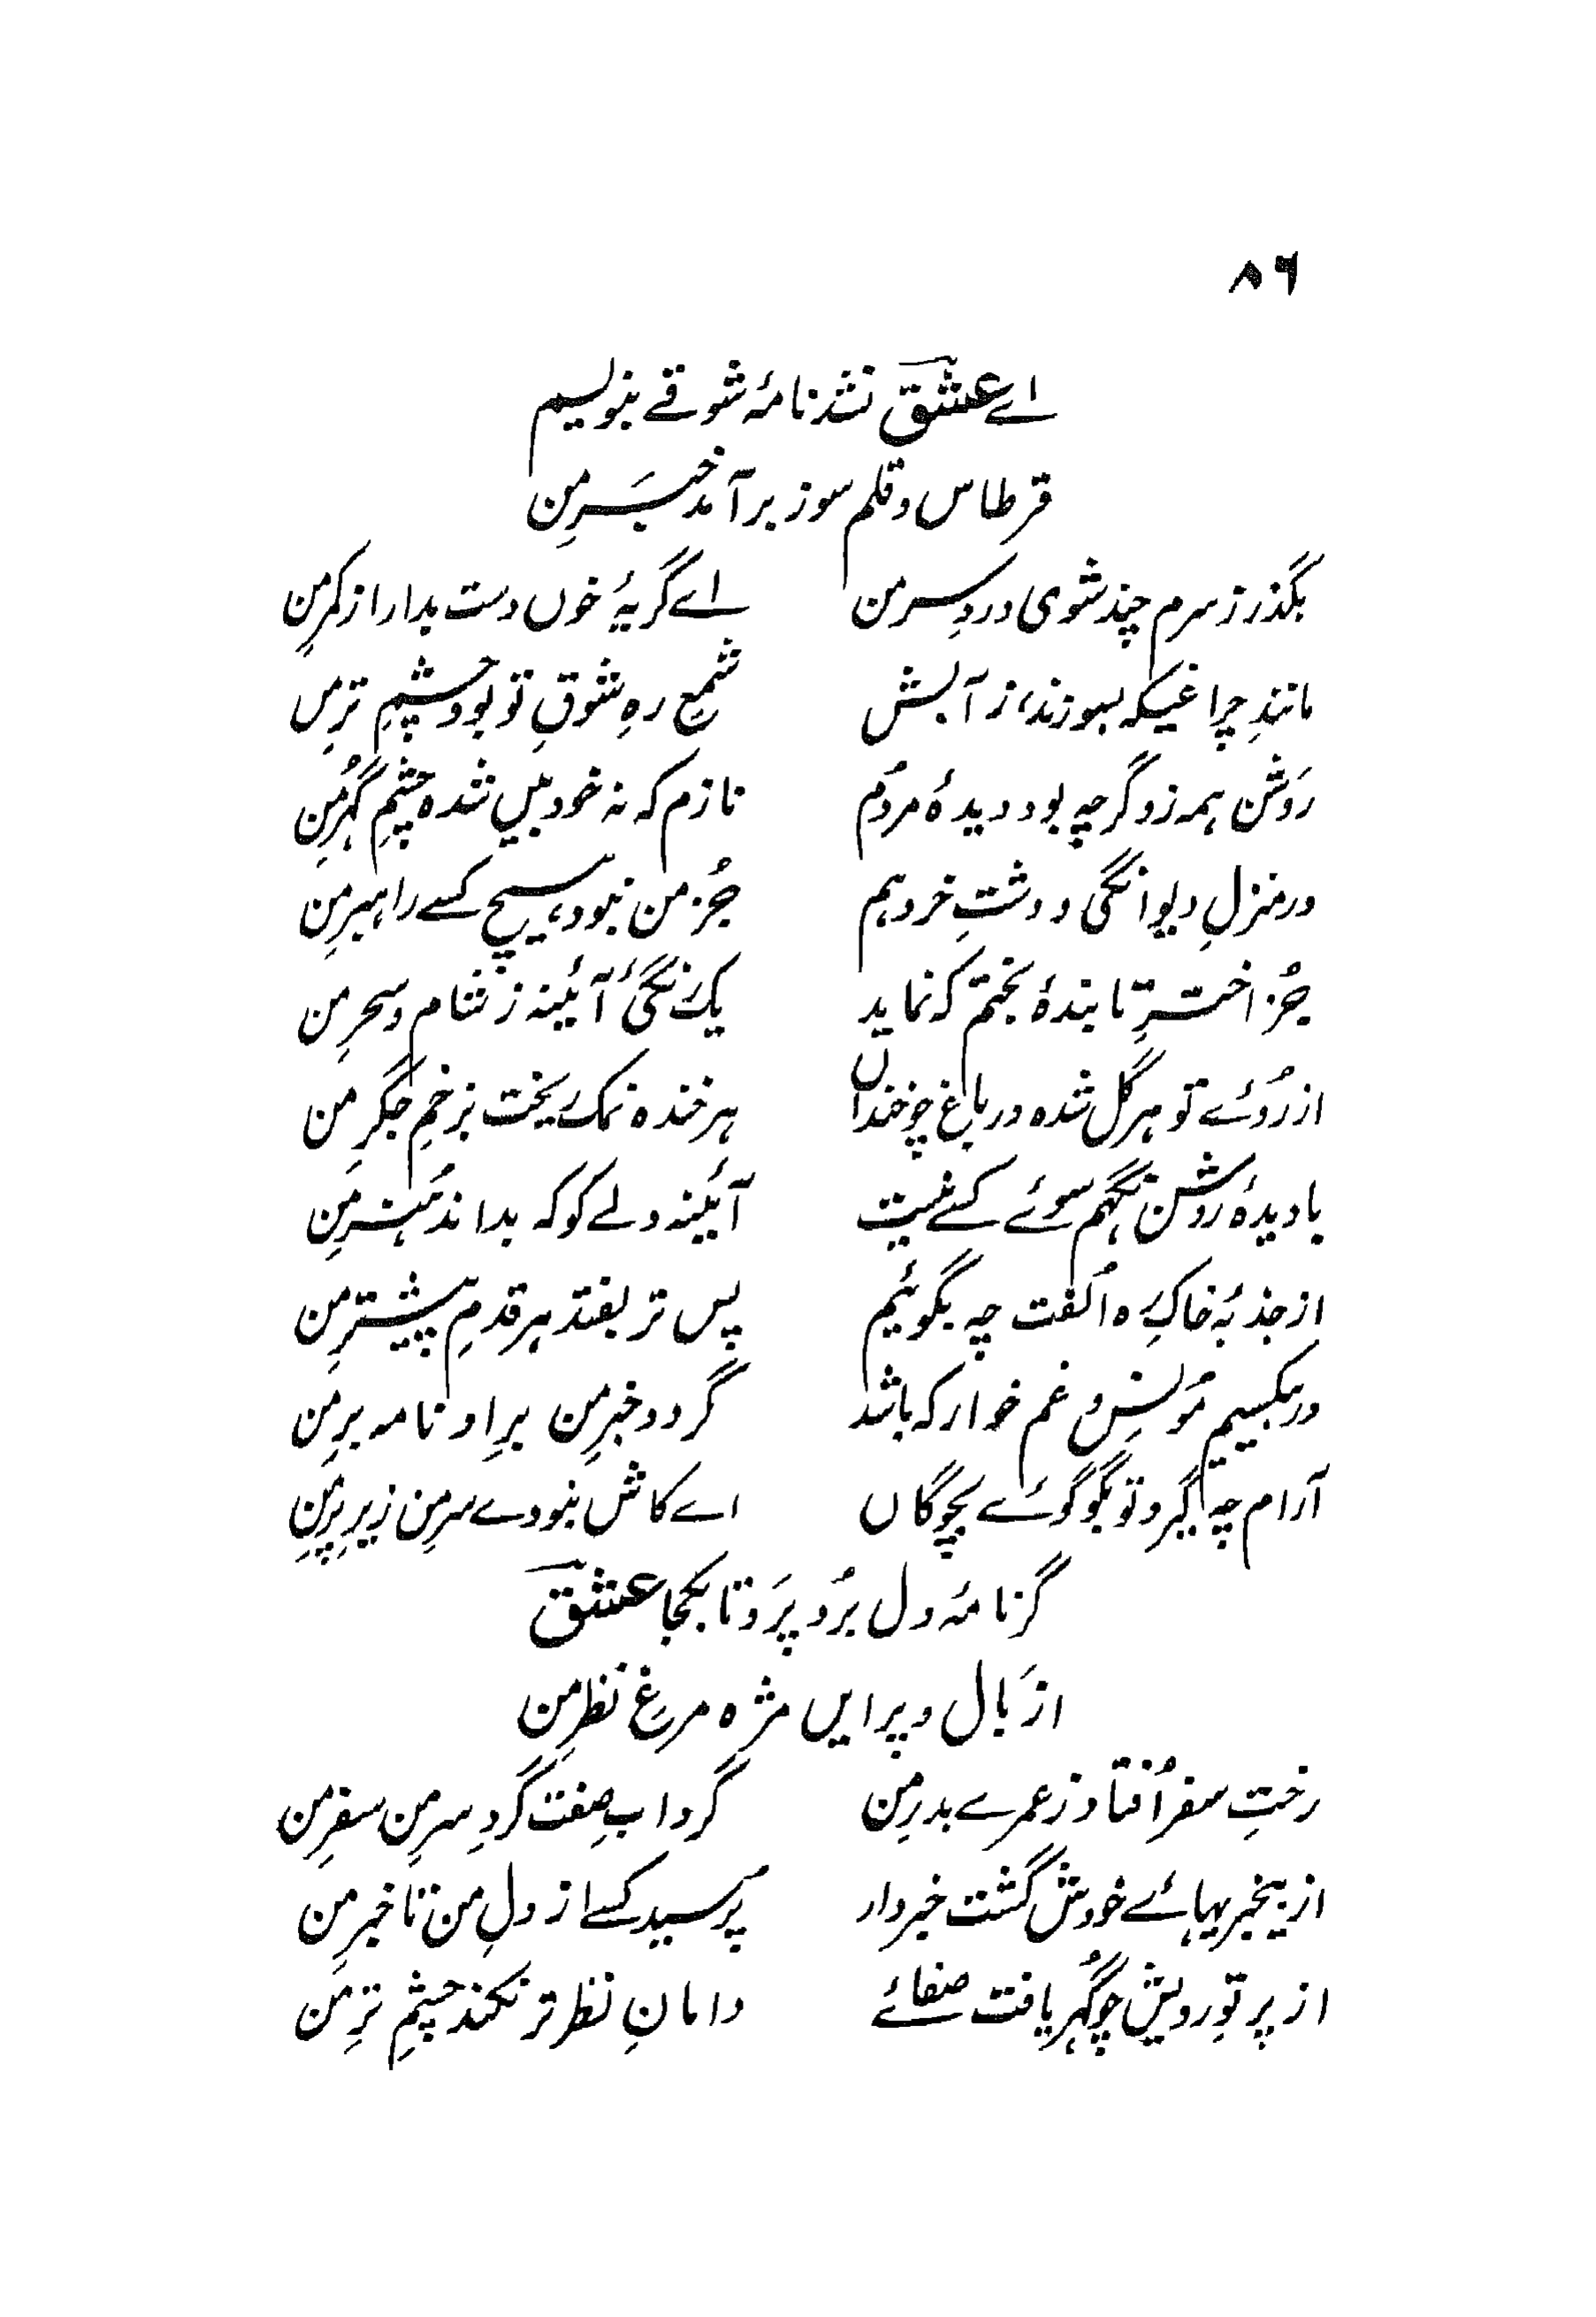 ۸۶
اے عشقؔ نشد نامۂ شوقے بنویسم
قرطاس و قلم سوز برآمد خبَرِ من
بگذر ز سرم چند شوی دردِ سرِ من اے گریۂ خوں دست بدار از کمرِ من
مانندِ چراغیکہ بسوزند، ز آبش شمعِ رہِ شوقِ تو بود چشمِ ترِ من
رَوشن ہمہ زو گرچہ بود دیدۂ مردُم نازم کہ نہ خود بیں شدہ چشمِ گہُرِ من
در منزلِ دیوانگی و دشتِ خرد ہم جُز من نبود، ہیچ کسے راہبرِ من
جُز اخترِ تابندۂ بختم کہ نماید یک رنگیٔ آئینہ ز شام و سحرِ من
از رُوئے تو ہر گل شدہ در باغ چو خنداں ہر خندہ نمک ریخت بزخمِ جگرِ من
با دیدۂ روشن نگہم سوئے کسے نیست آئینہ دلے کو کہ بداند ہُنرِ من
از جذبۂ خاکِ رہِ اُلفت چہ بگوئیم پس تر بفتد ہر قدمِ پیشترِ من
در بیکسیم مُونس و غم خوار کہ باشد گردد خبرِ من برِ او نامہ برِ من
آرام چہ گیرد تو بگو گوئے بچوگاں اے کاش نبودے سرِ من زیرِ پرِ من
گر نامۂ دل بُرد پَرَد تا بکجا عشقؔ
از بال و پر ایں مژہ مرغِ نظرِ من
رختِ سفر اُفتاد ز عمرے بدرِ من گرداب صِفت گردِ سرِ من سفرِ من
از بیخبریہائے خودش گشت خبردار پُرسید کسے از دلِ من تا خبرِ من
از پرتوِ رویش چو گُہر یافت صفائے دامانِ نظر تر نکند چشمِ ترِ من